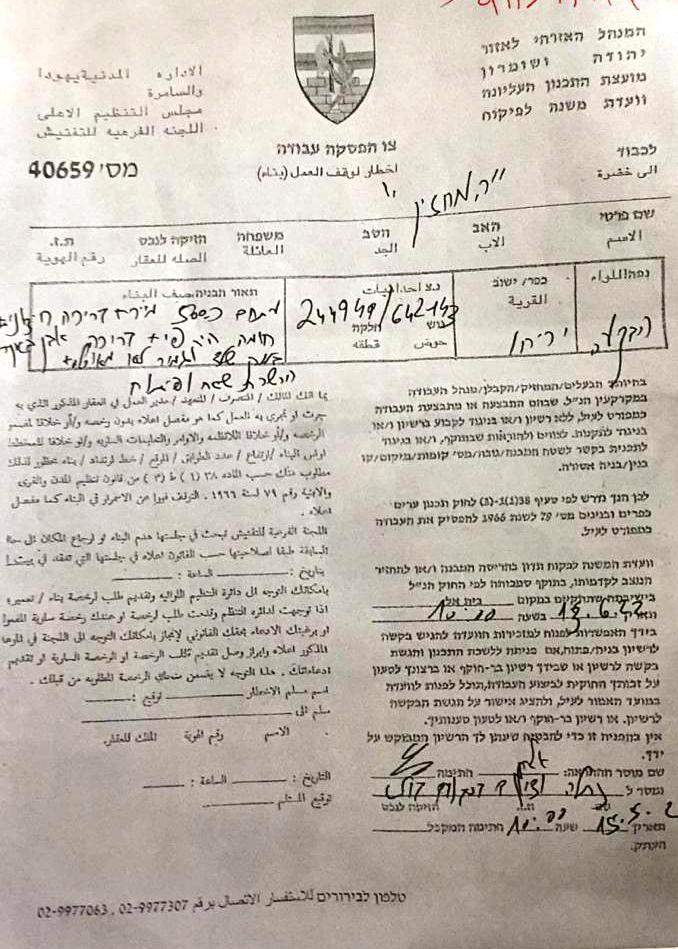 המנהל האזרחי לאזור
יהודה ושומרון
מועצת התכנון העליונה
וועדת משנה לפיקוח
الاداره المدنية يهودا
والسامرة
مجلس التنظيم الاعلى
اللجنه الفرعيه للتفتيش
צו הפסקת עבודה
اخطار لوقف العمل (بناء)
מס' 40659
לכבוד
الى حضرة
שם פרטי
الاسم
האב
الاب
הסב
الجد
משפחה
العائلة
חזיקה לנכס
الصله للعقار
ת.ז.
رقم الهوية
נפה/اللواء
הבקעה
כפר/ ישוב
القرية
יריחו
נ.צ احداثيات
244949/642143
גוש
حوض
חלקה
قطعه
תאור הבניה/صف البناء
בחיותך הבעלים/המחזיק/הקבלן/מנהל העבודה
במקרקעין הנ"ל, שבהם התבצעה או מתבצעת העבודה
כמפורט לעיל, ללא רשיון ו/או בניגוד לקבוע ברשיון ו/או
בניגוד לתקנות, לצווים ולהוראות שבתוקף, ו/או בניגוד
לתכנית בקשר לשטח המבנה/גובה/מס' קומות/מיקום/קו
בנין/בניה אסורה.
לכן הנך נדרש לפי סעיף 38(1)-(3) לחוק תכנון ערים
כפרים ובנינים מס' 79 לשנת 1966 להפסיק את העבודה
כמפורט לעיל.
וועדת המשנה לפקוח תדון בהריסת המבנה ו/או להחזיר
המצב לקדמותו, בתוקף סמכותה לפי החוק הנ"ל
בישיבתה שתתקיים במקום בית אל
בשעה 10:00
בידך האפשרות לפנות למזכירות הוועדה להגיש בקשה
לרשיון בניה/פתוח, אם פנית ללשכת התכנון והגשת
בקשה לרשיון או שבידך רשיון בר-תוקף או ברצונך לטעון
על זכותך החוקית לביצוע העבודה, תוכל לפנות לוועדה
במועד האמור לעיל, ולהציג אישור על הגשת הבקשה
לרשיון, או רשיון בר-תוקף ו/או לטעון טענותיך.
אין בהפניה זו כדי להבטיח שינתן לך הרשיון המבוקש על
ידך.
שם מוסר ההתראה: חתימה
נמסר ל
שם ת.ז. הזיקה לנכס
תאריך 15.5. שעה 10:00 חתימת המקבל
העתק.
بما انك المالك / المتصرف / المتعهد / مدير العمل في العقار المذكور الذي به
جرت او تجري به العمل كما هو مفصل اعلاه بدون رخصه و/أو خلافا لمضمون
الرخصه و/أو خلافا للانظمه والاوامر والتعليمات الساريه و/او خلافا للمخطط
لاوامر البناء / ارتفاع / عدد الطوابق / الموقع / خط ارتداد / بناء محظور لذلك
مطلوب منك حسب الماده ٣٨ (١) ط (٣) من قانون تنظيم المدن والقرى
والابنية رقم ٧٩ لسنة ١٩٦٦. التوقف فورا عن الاستمرار في البناء كما مفصل
اعلاه.
اللجنه الفرعية للتفتيش تبحث في جلستها هدم البناء او لارجاع المكان الى حاله
السابقة طبقا لصلاحيتها حسب القانون اعلاه في جلستها التي تعقد في
بتاريخ: الساعة:
بامكانك التوجه الى دائرة التنظيم اللوائيه وتقديم طلب لرخصة بناء / تعمير؛
اذا توجهت لدائره التنظيم وقدمت طلب لرخصة او عندك رخصة سارية المفعول
او برغبتك الادعاء بحقك القانوني لإنجاز بامكانك التوجه الى اللجنة في الموعد
المذكور اعلاه وابراز وصل تقديم طلب الرخصة او الرخصة السارية او تقديم
ادعاءاتك. هذا التوجه لا يضمن منحك الرخصة المطلوبه من قبلك.
اسم مسلم الاخطار: توقيع:
مسلم الى
الاسم رقم الهوية المالك للعقار
التاريخ: الساعة:
توقيع المستلم
טלפון לבירורים للاستفسار الاتصال برقم 02-9977307 , 02-9977063